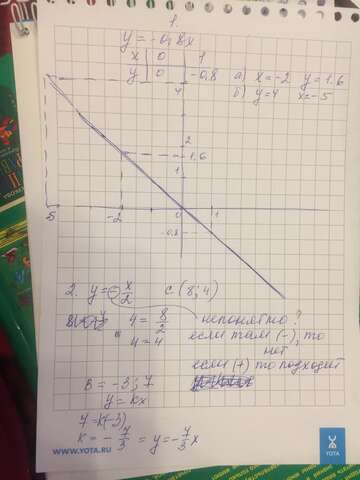 1.
y = -0,8x
x | 0 | 1
y | 0 | -0,8
а) x = -2 y = 1.6
б) y = 4 x = -5
4
2
1.6
1
-5 -2 0 1
-0.8
2. y = - x/2 C (8; 4)
4 = 8/2 непонятно?
4 = 4 если там (-), то
нет
если (+) то подходит
B = -3; 7
y = kx
7 = k(-3)
k = - 7/3 = y = - 7/3 x
WWW.YOTA.RU
YOTA